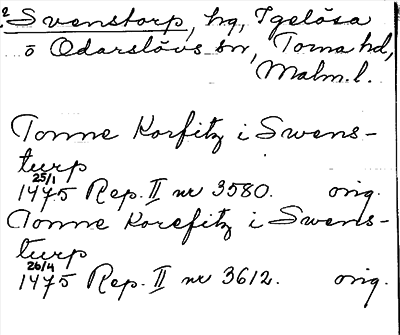 ? Svenstorp, hg, Igelösa
o Odarslövs sn, Torna hd,
Malm. l.
Tonne Korfitz i Swens-
turp
25/1
1475 Rep. II nr 3580. orig.
Tonne Korefitz i Swens-
turp
26/4
1475 Rep. II nr 3612. orig.